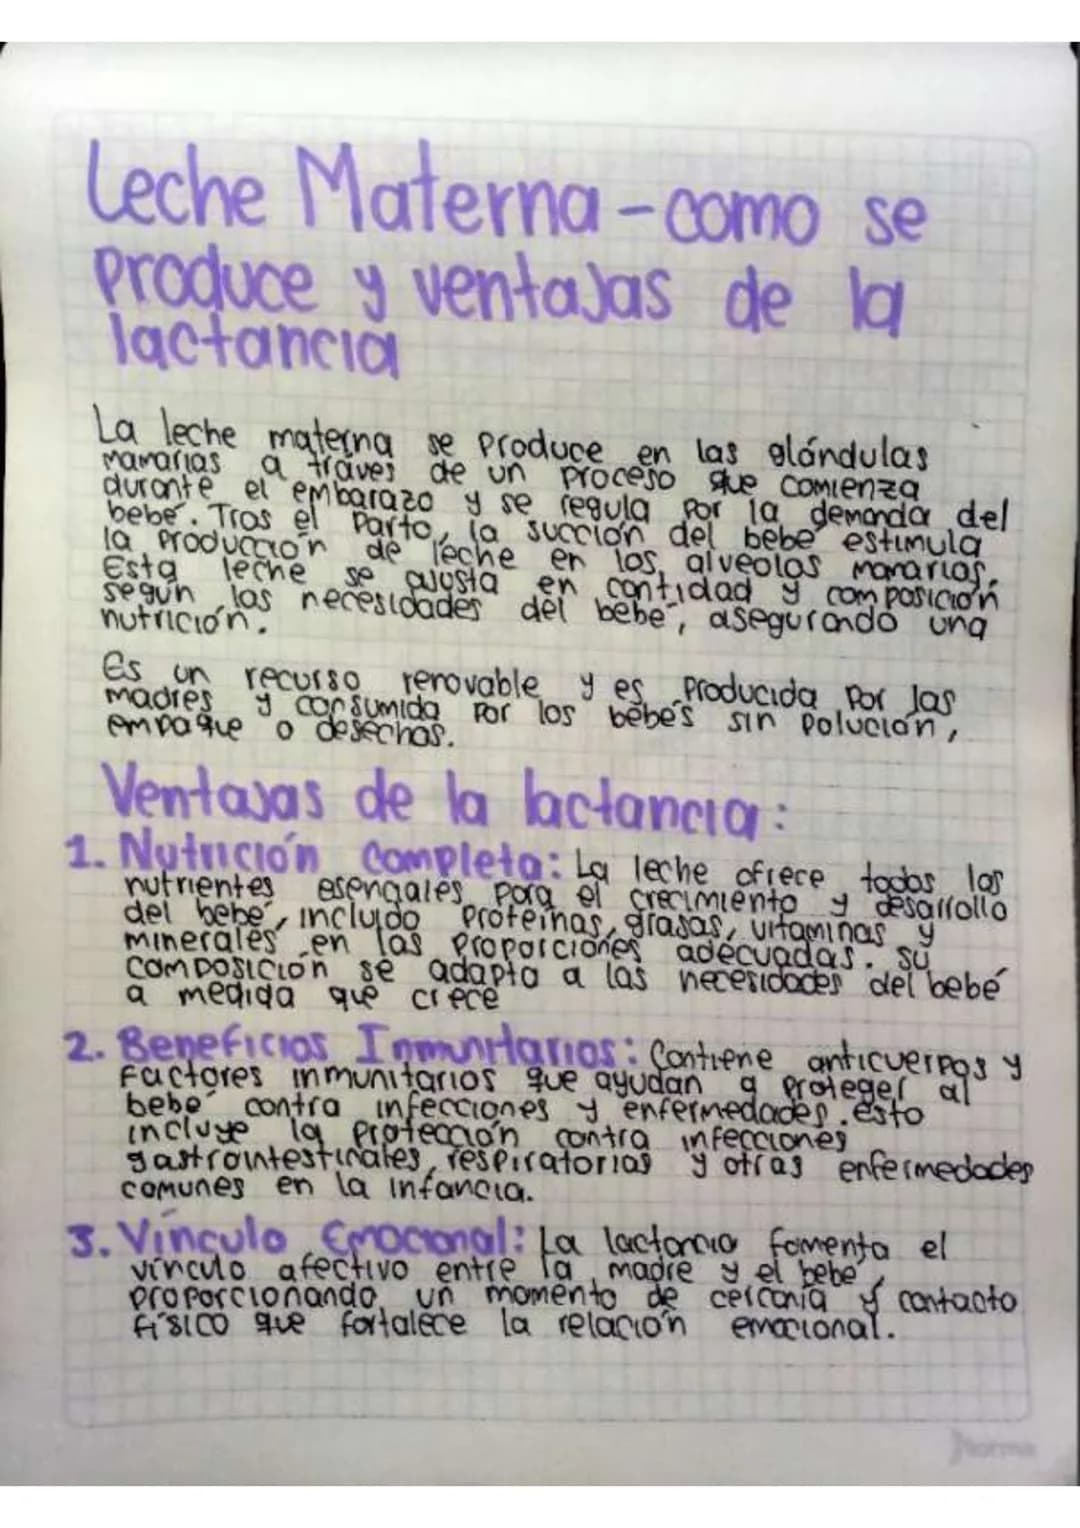 Leche Materna - como se
Produce y ventajas de la
lactancia
La leche materna se Produce en las glándulas
mamarias a tráves de un proceso que comienza
durante el embarazo y se regula Por la demanda del
bebé. Tras el Parto, la succión del bebe estimula
la Producción de leche en los alveolos mamarios.
Esta leche se ajusta en cantidad y composición
según las necesidades del bebé, asegurando una
nutrición.
Es un recurso renovable y es Producida Por las
madres y consumida Por los bebés sin Polución,
empaque o desechos.
Ventajas de la lactancia:
1. Nutrición Completa: La leche ofrece todos los
nutrientes esenciales para el crecimiento y desarrollo
del bebé, incluido Proteínas, grasas, vitaminas y
minerales en las Proporciones adecuadas. su
composición se adapta a las necesidades del bebé
a medida que crece
2. Beneficios Inmunitarios: Contiene anticuerpos y
Factores inmunitarios que ayudan a Proteger al
bebe contra infecciones y enfermedades. esto
incluye la Protección contra infecciones
gastrointestinales, respiratorias y otras enfermedades
comunes en la infancia.
3. Vínculo Emocional: La lactancia fomenta el
vínculo afectivo entre la madre y el bebé,
proporcionando un momento de cercanía y contacto
físico que fortalece la relación emocional.
Norma